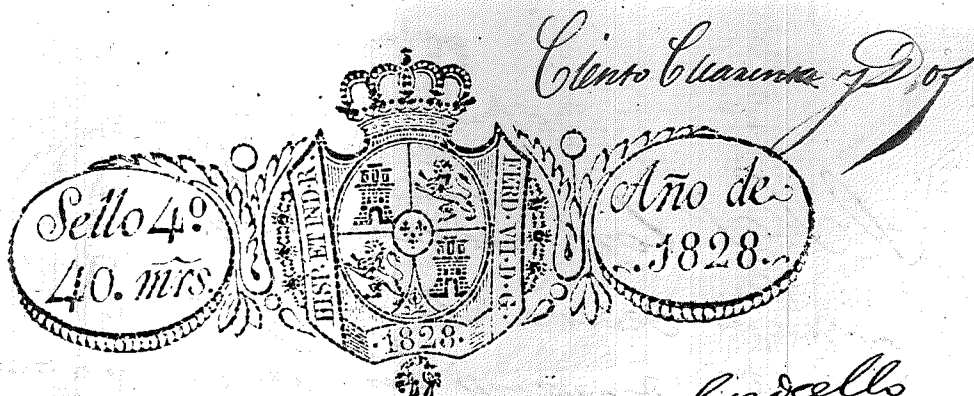 Ciento Cuarenta y Dos
Sello 4º
40. mrs.
HISP. ET IND. R.
FERD. VII. D. G.
1828.
Año de
1828.